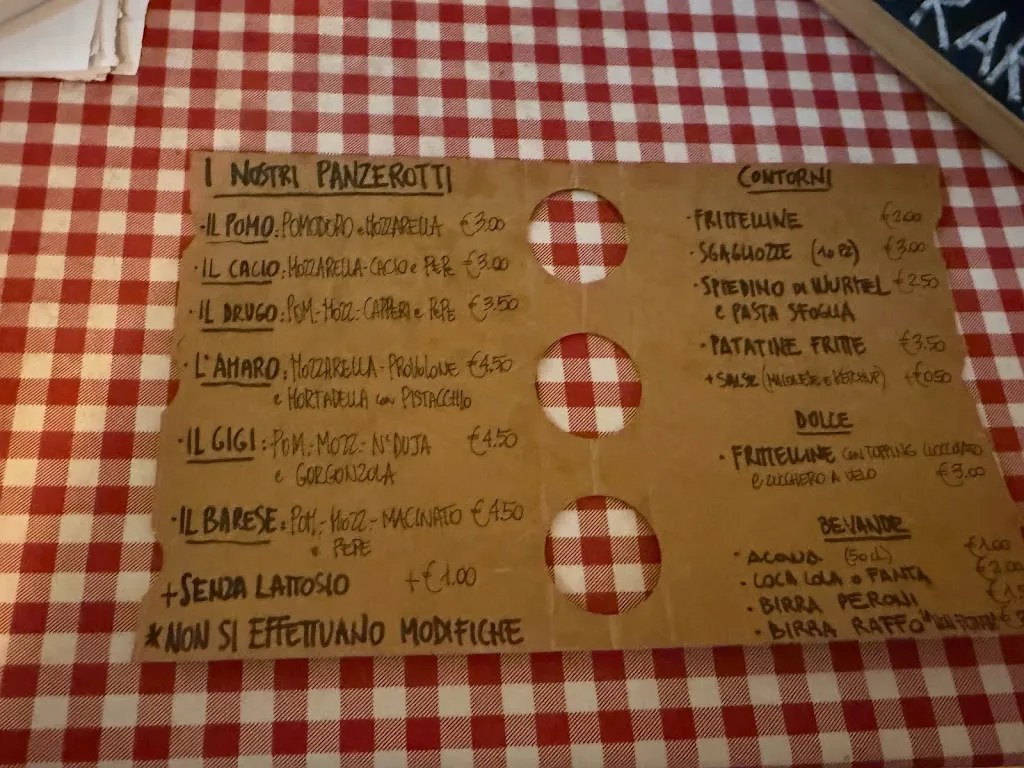 I NOSTRI PANZEROTTI
·IL POMO: POMODORO e MOZZARELLA €3.00
·IL CACIO: MOZZARELLA-CACIO e PEPE €3.00
·IL DRUGO: POM.-MOZZ-CAPPERI e PEPE €3.50
·L'AMARO: MOZZARELLA-PROVOLONE €4.50
e MORTADELLA con PISTACCHIO
·IL GIGI: POM-MOZZ-N'DUJA €4.50
e GORGONZOLA
·IL BARESE: POM.-MOZZ-MACINATO €4.50
e PEPE
+SENZA LATTOSIO +€1.00
*NON SI EFFETTUANO MODIFICHE
CONTORNI
·FRITTELLINE €2.00
·SGAGLIOZZE (10 PZ) €3.00
·SPIEDINO DI WURTEL €2.50
e PASTA SFOGLIA
·PATATINE FRITTE €3.50
+SALSE (MAIONESE e KETCHUP) +€0.50
DOLCE
·FRITTELLINE CON TOPPING CIOCCOLATO
e ZUCCHERO A VELO €3.00
BEVANDE
·ACQUA (50cl) €1.00
·COCA COLA o FANTA €2.00
·BIRRA PERONI
·BIRRA RAFFO
RAF